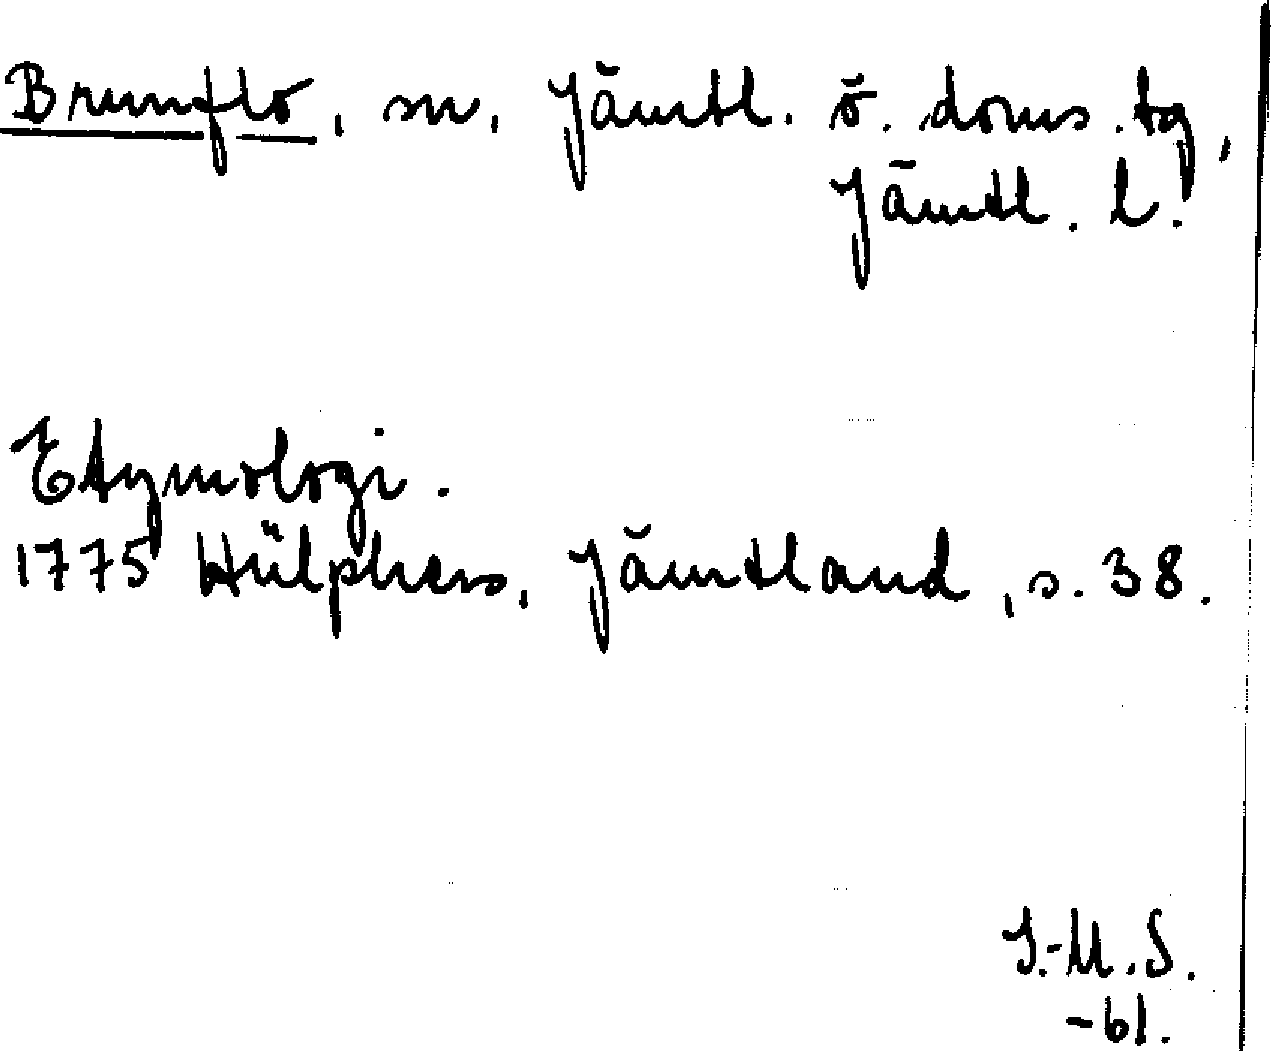 Brunflo, sn. Jämtl. ö. doms. tg,
Jämtl. l.
Etymologi.
1775 Hülphers, Jämtland, s. 38.
I.-M.S.
-61.